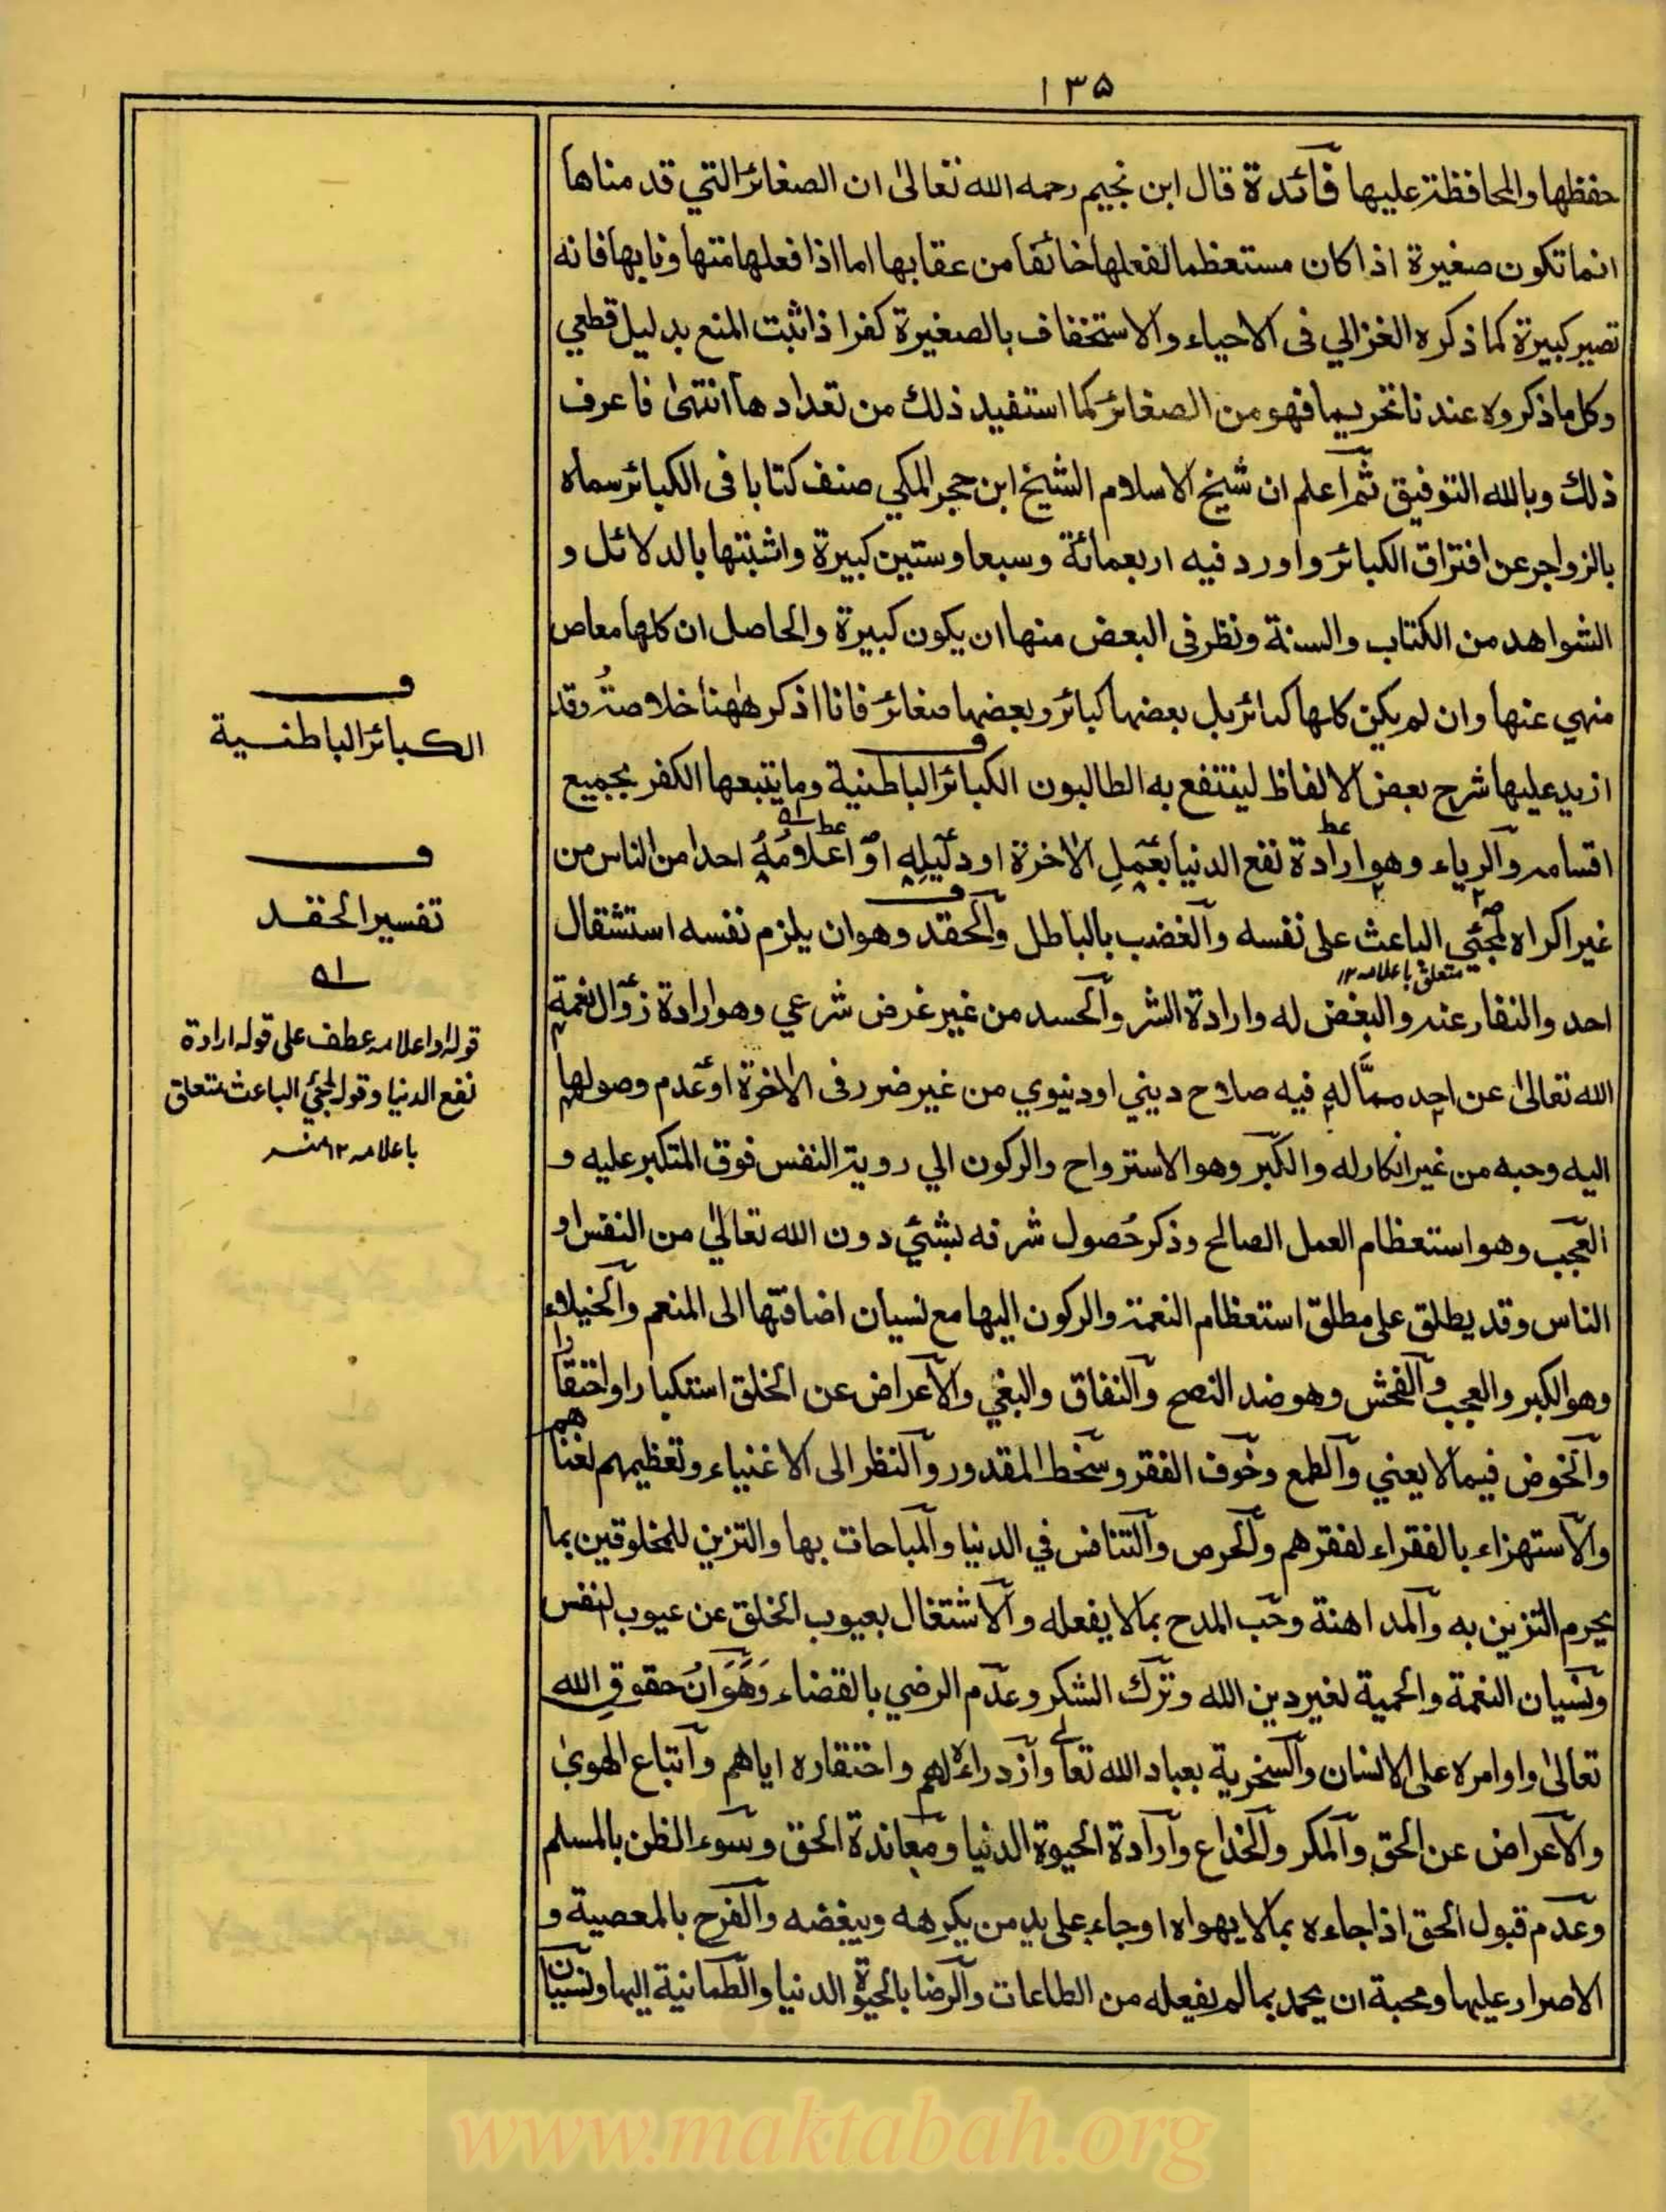 ۱۳۵
حفظها والمحافظة عليها فائدة قال ابن نجيم رحمه الله تعالىٰ ان الصغائر التي قدمناها
انما تكون صغيرة اذا كان مستعظما لفعلها خائفا من عقابها اما اذا فعلها متهاونا بها فانه
تصير كبيرة كما ذكره الغزالي فى الاحياء والاستخفاف بالصغيرة كفر اذا ثبت المنع بدليل قطعي
وكل ما ذكروه عندنا تحريما فهو من الصغائر كما استفيد ذلك من تعدادها انتهىٰ فاعرف
ذلك وبالله التوفيق ثم اعلم ان شيخ الاسلام الشيخ ابن حجر المكي صنف كتابا فى الكبائر سماه
بالزواجر عن افتراق الكبائر واورد فيه اربعمائة وسبعا وستين كبيرة واثبتها بالدلائل و
الشواهد من الكتاب والسنة ونظر فى البعض منها ان يكون كبيرة والحاصل ان كلها معاص
منهي عنها وان لم يكن كلها كبائر بل بعضها كبائر وبعضها صغائر فانا اذكر هٰهنا خلاصتُه وقد
ازيد عليها شرح بعض الالفاظ لينتفع به الطالبون الكبائر الباطنية وما يتبعها الكفر بجميع
اقسامه والرياء وهو ارادة نفع الدنيا بعملِ الاٰخرة او دليلِه او اعلامُهُ احدا من الناس من
غير اكراه لمجئي الباعث على نفسه والغضب بالباطل والحقد وهو ان يلزم نفسه استثقال
متعلق باعلامه ١٢
احد والنفار عنه والبغض له وارادة الشر والحسد من غير غرض شرعي وهو ارادة زوال نعمة
الله تعالىٰ عن احد ممَّا له فيه صلاح ديني او دنيوي من غير ضرر فى الاٰخرة او عدم وصولها
اليه وحبه من غير انكار له والكبر وهو الاستزواح والركون الي روية النفس فوق المتكبر عليه و
العجب وهو استعظام العمل الصالح وذكر حُصول شرفه بشئي دون الله تعالىٰ من النفس او
الناس وقد يطلق على مطلق استعظام النعمة والركون اليها مع نسيان اضافتها الى المنعم والخيلاء
وهو الكبر والعجب والفحش وهو ضد النصح والنفاق والبغي والاعراض عن الخلق استكبارا واحتقارا
والخوض فيما لا يعني والطمع وخوف الفقر وسخط المقدور والنظر الى الاغنياء وتعظيمهم لغناهم
والاستهزاء بالفقراء لفقرهم والحرص والتنافس في الدنيا والمباحات بها والتزين للمخلوقين بما
يحرم التزين به والمداهنة وحب المدح بما لا يفعله والاشتغال بعيوب الخلق عن عيوب لنفس
ونسيان النعمة والحمية لغير دين الله وترك الشكر وعدم الرضي بالقضاء وَهَوَانُ حقوقِ الله
تعالىٰ واوامره على الانسان والسخرية بعباد الله تعالى وازدراءه لهم واحتقاره اياهم واتباع الهوىٰ
والاعراض عن الحق والمكر والخداع وارادة الحيوة الدنيا ومعاندة الحق وسوء الظن بالمسلم
وعدم قبول الحق اذا جاءه بما لا يهواه او جاء على يد من يكرهه ويبغضه والفرح بالمعصية و
الاصرار عليها ومحبة ان يحمد بما لم يفعله من الطاعات والرضا بالحيوة الدنيا والطمانية اليها ونسيان
الكبائر الباطنية
تفسير الحقد
قوله او اعلامه عطف على قوله ارادة
نفع الدنيا وقوله لمجئي الباعث متعلق
باعلامه ١٢ منه
www.maktabah.org